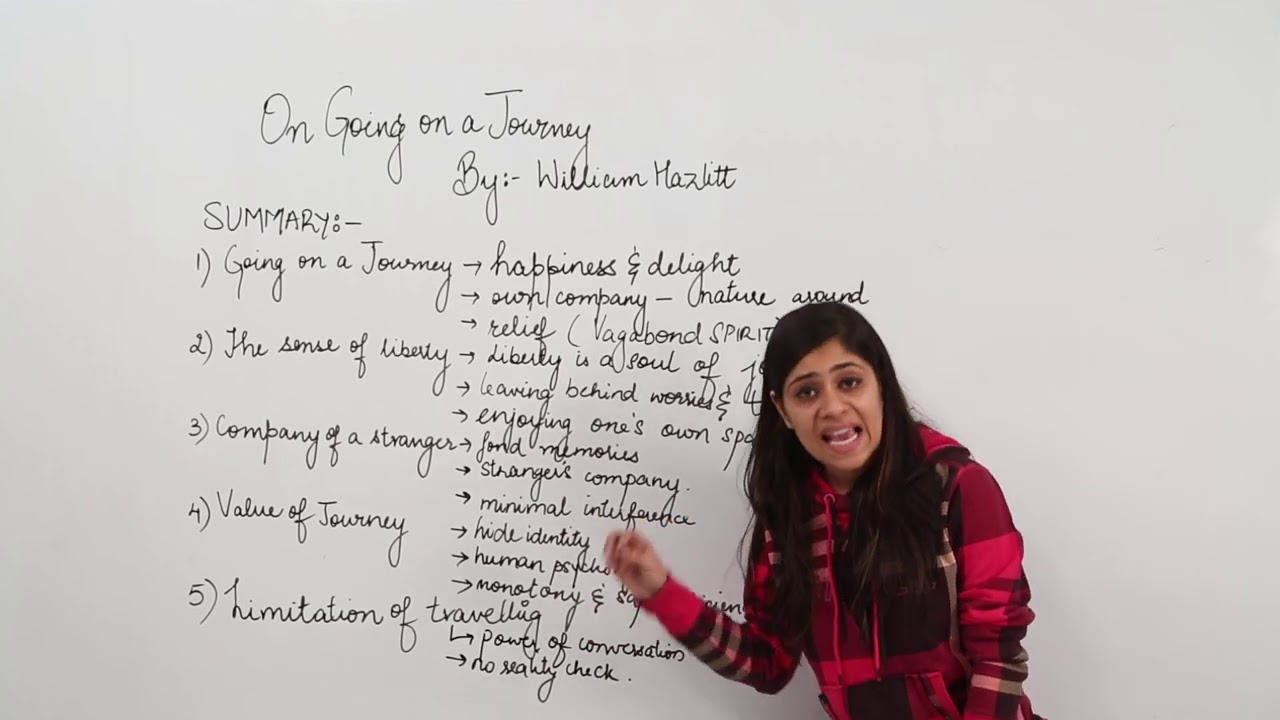 On Going on a Journey
By:- William Hazlitt
SUMMARY:-
1) Going on a Journey → happiness & delight
→ own company - nature around
→ relief (Vagabond SPIRIT)
2) The sense of liberty → Liberty is a soul of
→ leaving behind worries &
→ enjoying one's own
3) Company of a stranger → fond memories
→ stranger's company.
→ minimal interference
4) Value of Journey
→ hide identity
→ human
→ monotony &
5) Limitation of travellig
↳ power of conversation
→ no reality check.